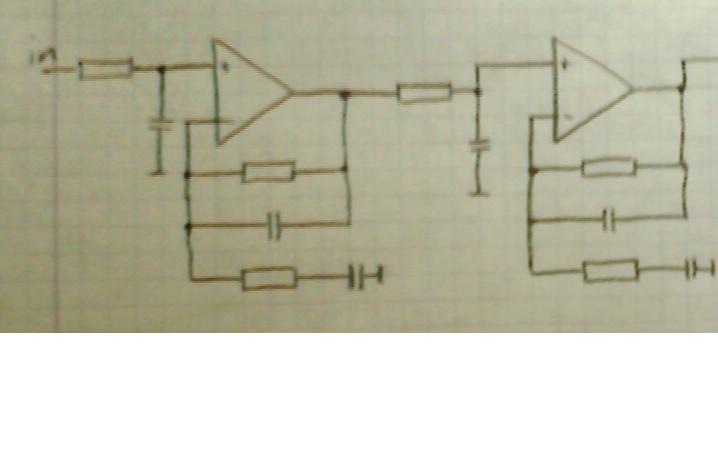 in
+
-
+
-